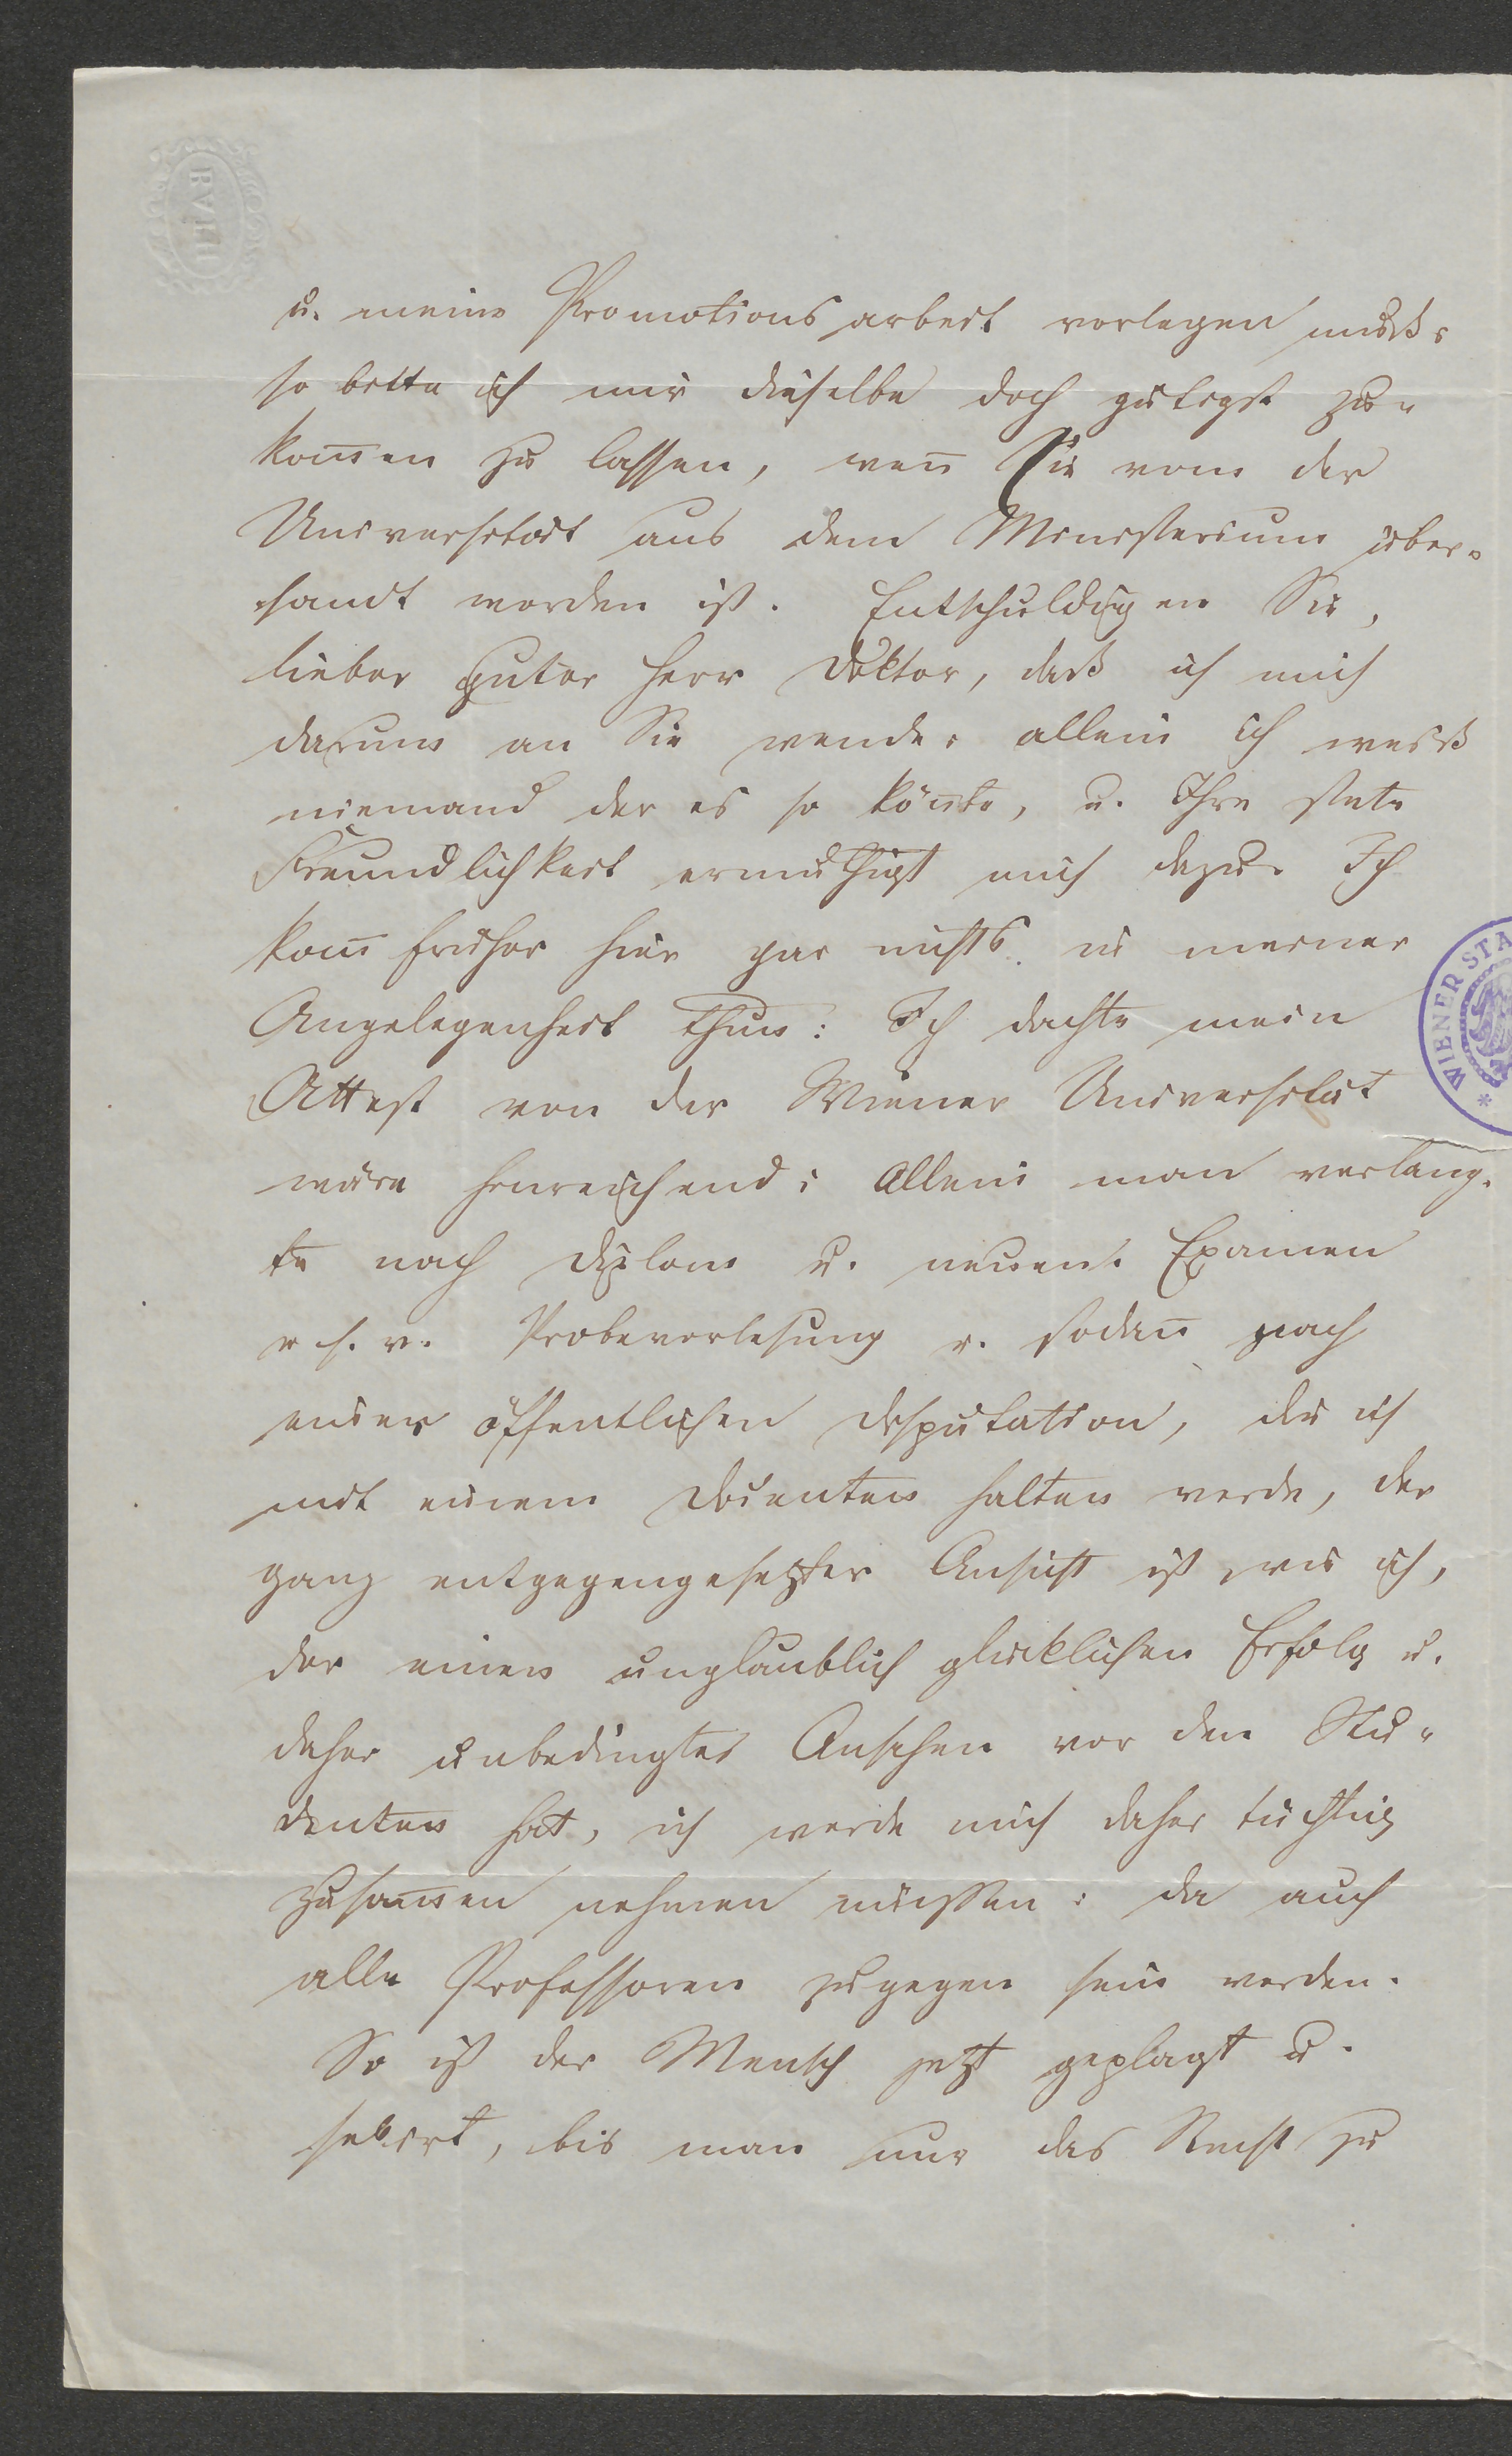 BATH
u. meine Promotionsarbeit vorlegen muß,
so bitte ich mir dieselbe doch gütigst zu-
kom̄en zu lassen, wen̄ sie von der
Universität aus dem Ministerium über-
sandt worden ist. Entschuldigen Sie,
lieber guter Herr Doktor, daß ich mich
darum an Sie wende, allein ich weiß
niemand der es so kön̄te, u. Ihre stete
Freundlichkeit ermuthigt mich dazu. Ich
kan̄ früher hier gar nichts in meiner
Angelegenheit thun: Ich dachte mein
Attest von der Wiener Universität
wäre hinreichend; Allein man verlang-
te nach Diplom u. neuen Examen
Probevorlesung u. sodan̄ nach
einer öffentlichen Disputation, die ich
mit einem Docenten halten werde, der
ganz entgegengesetzter Ansicht ist wie ich,
der einen unglaublich glücklichen Erfolg u.
daher unbedingtes Ansehen vor den Stu-
denten hat, ich werde mich daher tüchtig
zusam̄en nehmen müssen: da auch
alle Professoren zugegen sein werden.
So ist der Mensch jetzt geplagt u.
sekirt, bis man nur das Recht zu
* WIENER STA